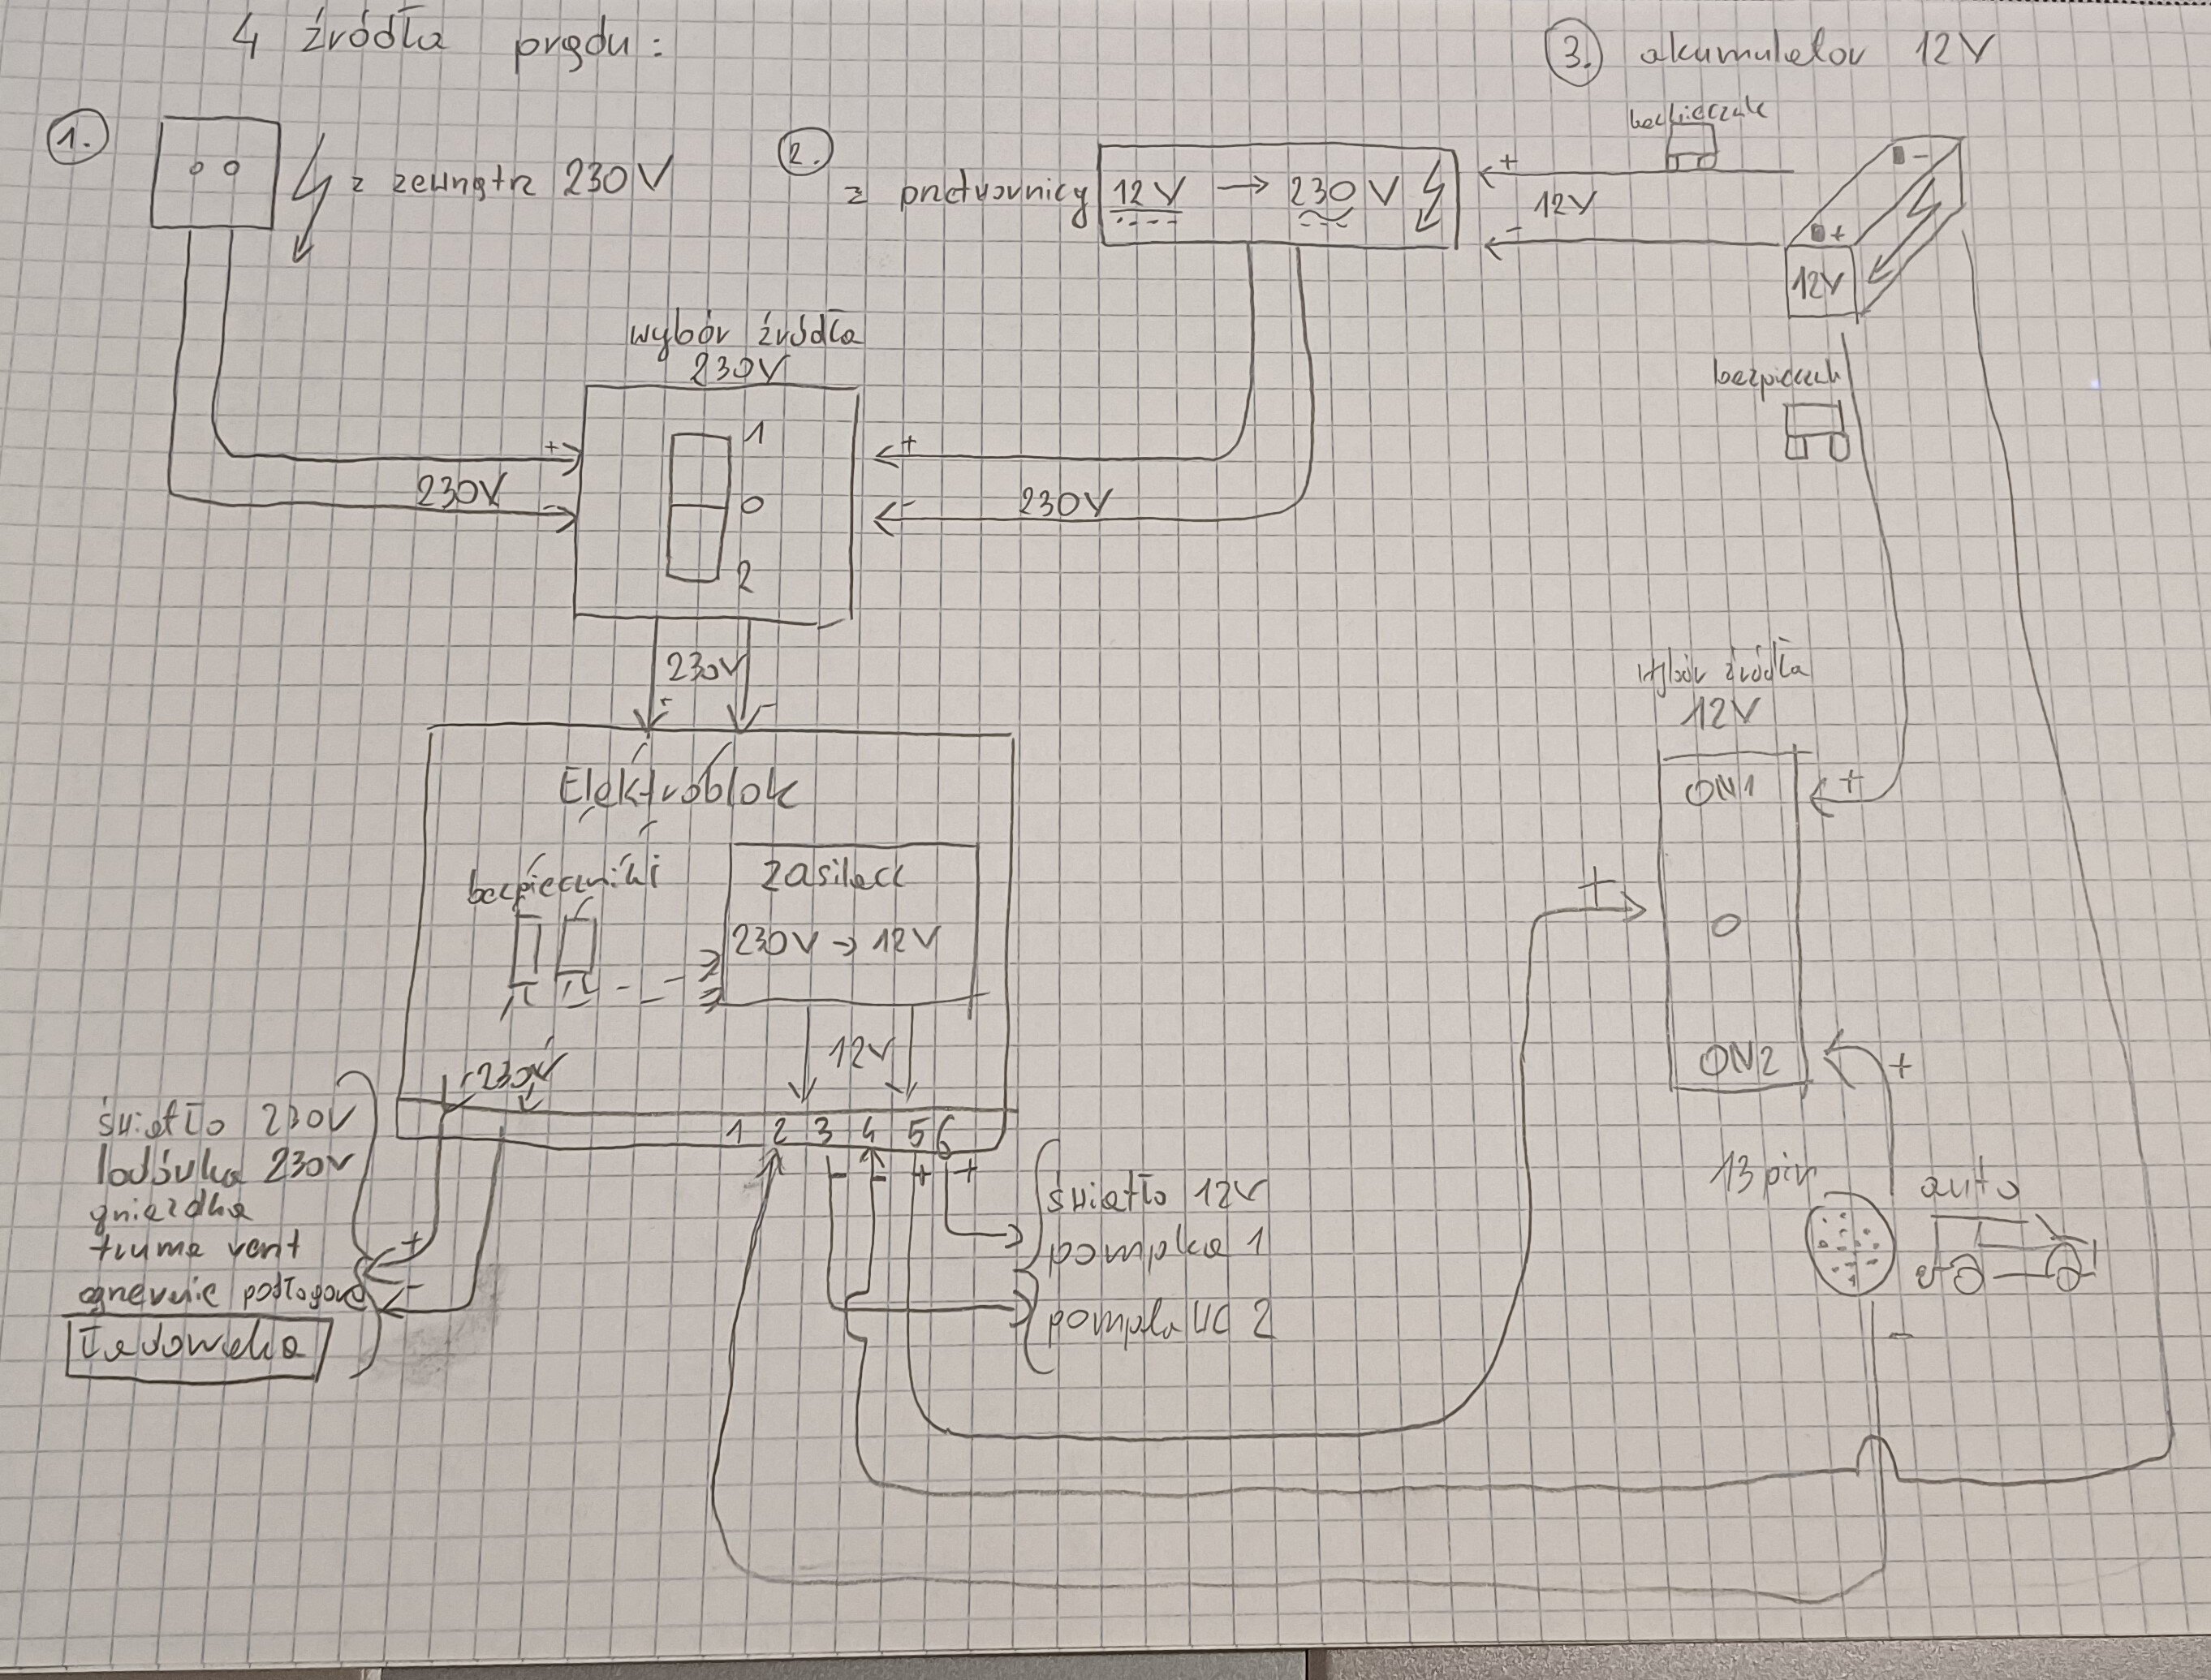 4 źródła prądu:
1.
z zewnątrz 230V
2.
z przetwornicy
12V → 230V
3. akumulator 12V
bezpiecznik
+
12V
-
-
+
12V
bezpieczn
wybór źródła
230V
1
0
2
+
230V
-
+
230V
-
230V
-
wybór źródła
12V
ON1
+
O
+
ON2
+
Elektroblok
bezpieczniki
zasilacz
230V → 12V
12V
230V
1 2 3 4 5 6
- - + +
światło 230V
lodówka 230V
gniazdka
truma vent
ogrzewanie podłogowe
ładowarka
+
-
światło 12V
pompka 1
pompka WC 2
13 pin
auto
-